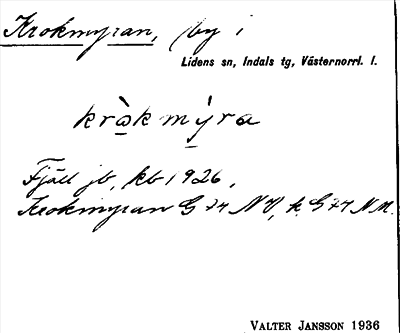 Krokmyran, by i
Lidens sn, Indals tg, Västernorrl. l.
kròkmýra
Fjäll jb, kb 1926,
Krokmyran G 74 NV, k. G 74 N.M.
VALTER JANSSON 1936